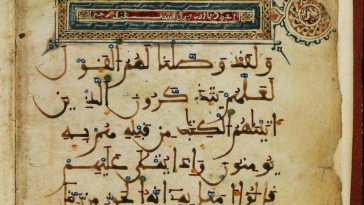 ولقد وصلنا لهم القول
لعلهم يتذكرون الذين
اتينهم الكتب من قبله هم به
يومنون واذا يتلى عليهم
قالوا امنا به انه الحق من ربنا